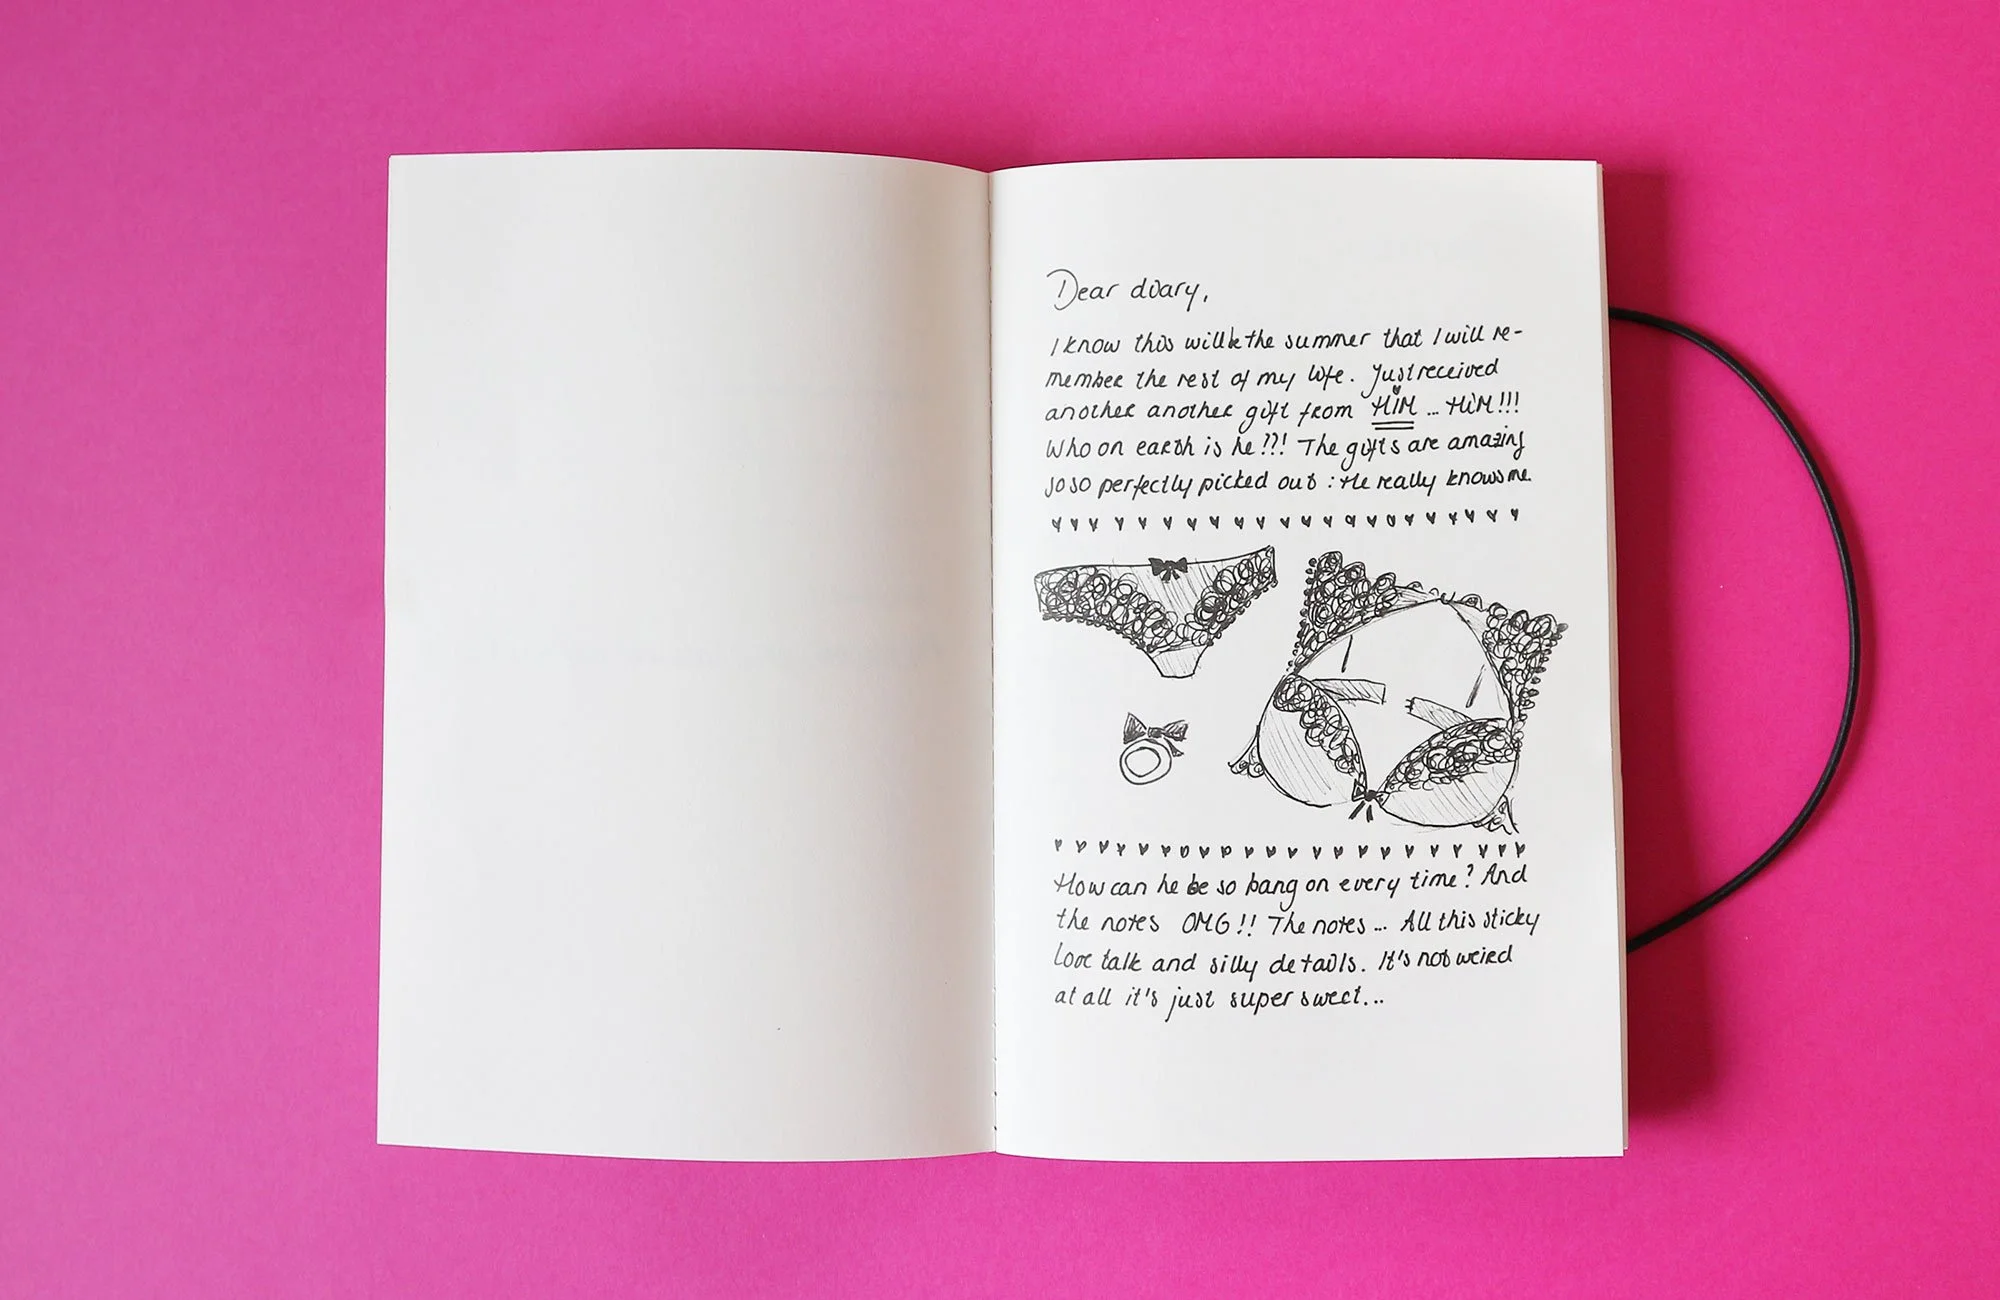 Dear diary,
I know this will be the summer that I will re-
member the rest of my life. Just received
another another gift from HiM ... HiM!!!
Who on earth is he??! The gifts are amazing
so so perfectly picked out : He really knows me.
How can he be so bang on every time? And
the notes OMG!! The notes ... All this sticky
love talk and silly details. It's not weird
at all it's just super sweet...